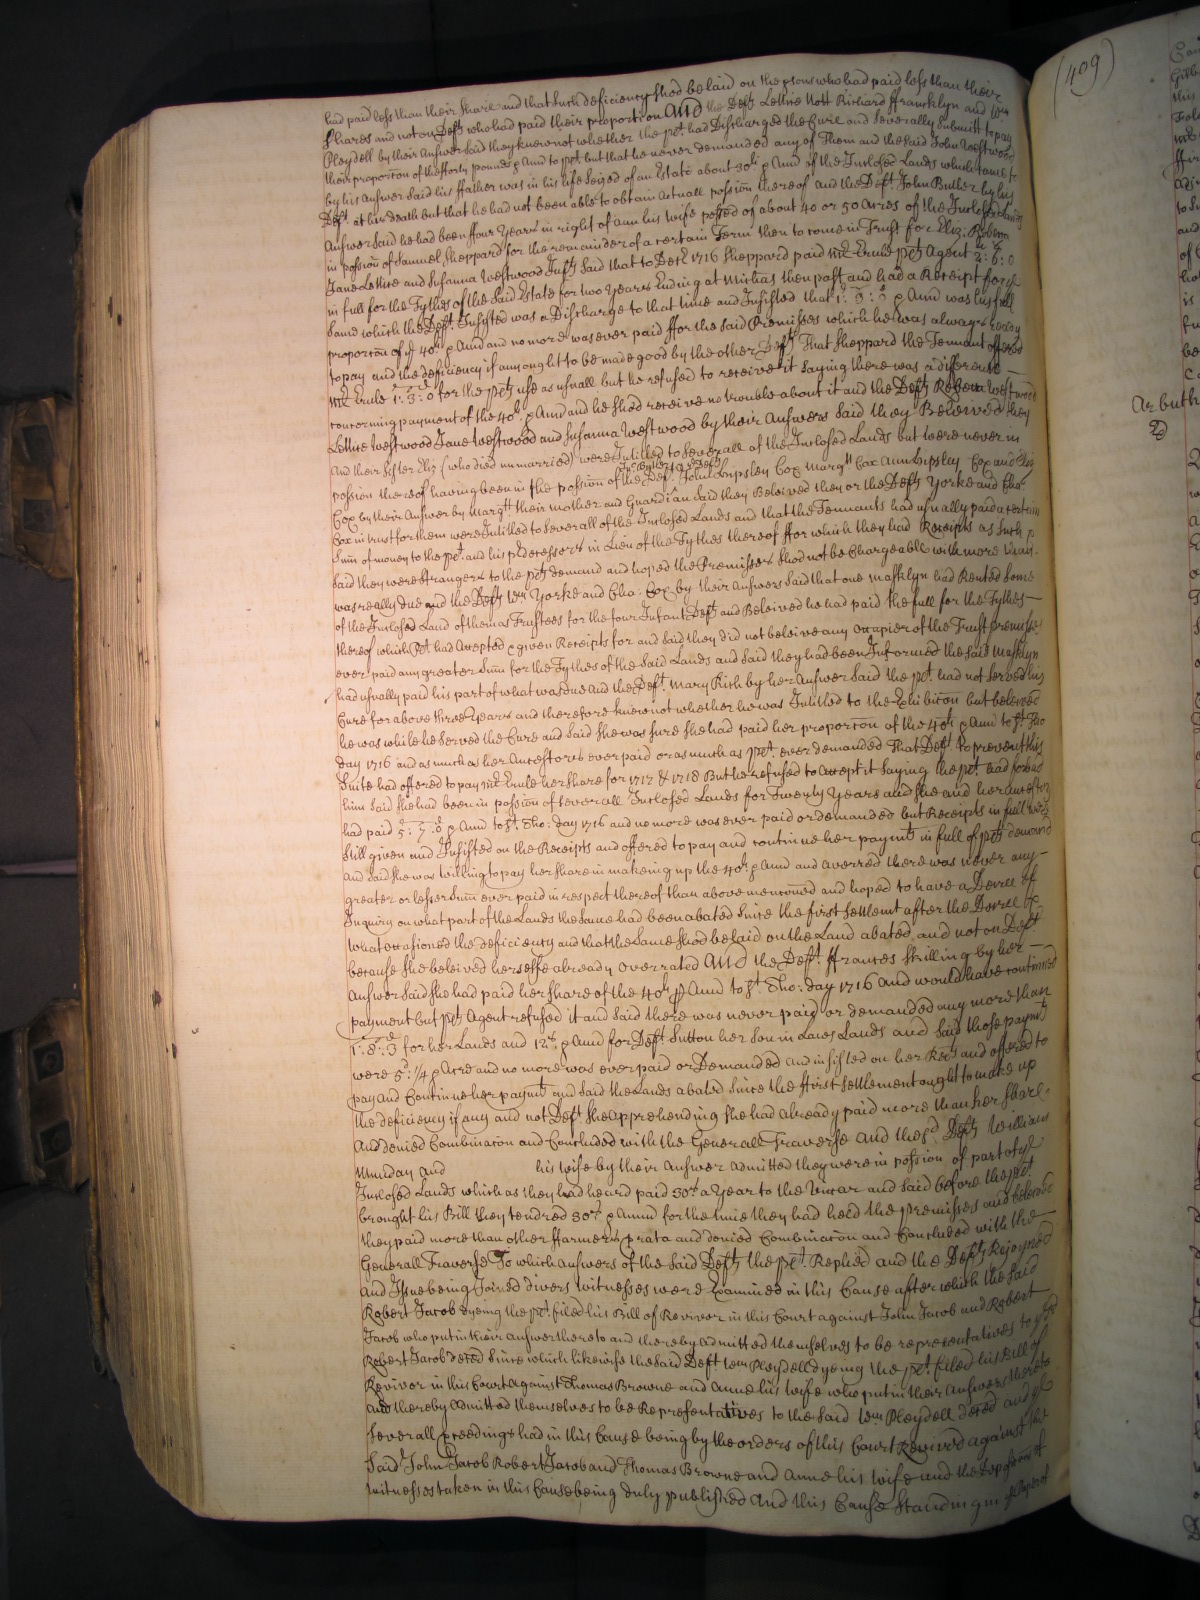 had paid less than their Share and that such deficiency shod be laid on the psons who had paid less than their
Shares and not on Defts who had paid their proportion And the Defts Lettice Nott Richard ffrancklyn and Wm
Pleydell by their Answer said they knew not whether the plt had Discharged the Cure and severally submitt to pay
their proporcon of the fforty pounds p Ann to plt but that he never demanded any of Them and the said John Westwood
by his Answer Said his ffather was in his life Seized of an Estate about 30li p Ann of the Inclosed Lands which came to
Deft at his death but that he had not been able to obtain actuall possion thereof and the Deft John Butler by his
Answer said he had been ffour Years in right of Ann his Wife possed of about 40 or 50 Acres of the Inclosed Lands
in possion of Samuel Sheppard for the remainder of a certain Term then to come in Trust for Eliz: Rebecca
Jane Lettice and Susanna Westwood Infts Said that to Decr 1716 Sheppard paid Mr Crule plts Agent 2: 6: 0
in full for the Tythes of the Said Estate for two Years Ending at Michas then past and had a Receipt for ye
Same which the Deft Insisted was a Discharge to that time and Insisted that 1: 3: 0 p Ann was his full
proporcon of ye 40li p Ann and no more was ever paid ffor the said Premisses which he was always ready
to pay and the deficiency if any ought to be made good by the other Defts That Sheppard the Tennant offered
Mr Crule 1: 3: 0 for the plts use as usuall but he refused to receive it saying there was a difference
concerning payment of the 40li p Ann and he shod receive no trouble about it and the Defts Rebecca Westwood
Lettice Westwood Jane Westwood and Susanna Westwood by their Answers said they Beleived they
And their sister Eliz (who died unmarried) were Intitled to severall of the Inclosed Lands but were never in
possion thereof having been in the possion of the Deft John Lipsley Cox Margtt Cox Ann Lipsley Cox and
Cox by their Answer by Margtt their mother and Guardian said they Beleived they or the Defts Yorke and Cha:
Cox in trust for them were Intitled to severall of the Inclosed Lands and that the Tennants had usually paid a certain
Sum of money to the plt and his pdecessors in Lieu of the Tythes thereof ffor which they had Receipts as such
said they were strangers to the plts demand and hoped the Premisses shod not be Chargeable with more than
was really due and the Defts Wm Yorke and Cha: Cox by their Answers Said that one Masklyn had Rented some
of the Inclosed Land of them as Trustees for the four Infant Defts and Beleived he had paid the full for the Tythes
thereof which plt had Accepted & given Receipts for and said they did not beleive any occupier of the Trust premisses
ever paid any greater Sum for the Tythes of the said Lands and said they had been Informed the said Masklyn
had usually paid his part of what was due and the Deft Mary Rich by her Answer Said the plt had not served his
Cure for above three Years and therefore knew not whether he was Intitled to the Exhibicon but beleived
he was while he served the Cure and said she was sure she had paid her proporcon of the 40li p Ann to St Tho
day 1716 and as much as her Ancestors ever paid or as much as plt ever demanded That Deft to prevent this
Suite had offered to pay Mr Crule her share for 1717 & 1718 But he refused to accept it saying the plt had forbad
him said she had been in possion of severall Inclosed Lands for Twenty Years and she and her Ancestors
had paid 5: 7: 0 p Ann to St Tho: day 1716 and no more was ever paid or demanded but Receipts in full were
still given and Insisted on the Receipts and offered to pay and continue her paymt in full of plts demand
and said she was willing to pay her share in makeing up the 40li p Ann and averred there was never any
greater or lesser Sum ever paid in respect thereof than above menconed and hoped to have a Decree of
Inquiry on what part of the Lands the Same had been abated since the first Settlemt after the Decree &
what occasioned the deficiency and that the Same shod be laid on the Land abated and not on Deft
because she beleived herselfe already overrated And the Deft ffrances Skilling by her
Answer Said she had paid her share of the 40li p Ann to St Tho: day 1716 and would have continued
payment but plts Agent refused it and said there was never paid or demanded any more than
1: 8: 3 for her Lands and 12s p Ann for Deft Sutton her Son in Laws Lands and said those paymts
were 5d: 1/4 p Acre and no more was ever paid or Demanded and insisted on her Rects and offered to
pay and Continue her paymt and Said the Lands abated since the ffirst Settlement ought to make up
the deficiency if any and not Deft She apprehending she had already paid more than her share
And denied Combinacon and Concluded with the Generall Traverse And the sd Defts William
Munday and his wife by their Answer Admitted they were in possion of part of ye
Inclosed Lands which as they had heard paid 30s a Year to the Vicar and said before the plt
brought his Bill they tendred 30s p Ann for the time they had held the premisses and beleived
they paid more than other ffarmers prata and denied Combinacon and Concluded with the
Generall Traverse To which Answers of the said Defts the plt Replied and the Defts Rejoyned
and Issue being Joined divers witnesses were Examined in this Cause after which the said
Robert Jacob dyeing the plt filed his Bill of Revivor in this Court against John Jacob and Robert
Jacob who put in their Answer thereto and thereby Admitted themselves to be representatives to ye sd
Robert Jacob deced since which likewise the said Deft Wm Pleydell dyeing the plt filed his Bill of
Revivor in this Court Against Thomas Browne and Anne his wife who put in their Answers thereto
and thereby Admitted themselves to be Representatives to the said Wm Pleydell deced and ye
severall pceedings had in this Cause being by the orders of this Court Revived against the
Said John Jacob Robert Jacob and Thomas Browne and Anne his wife and the Deposicons of
witnesses taken in this Cause being duly published And this Cause Standing in
(409)
Arbuth